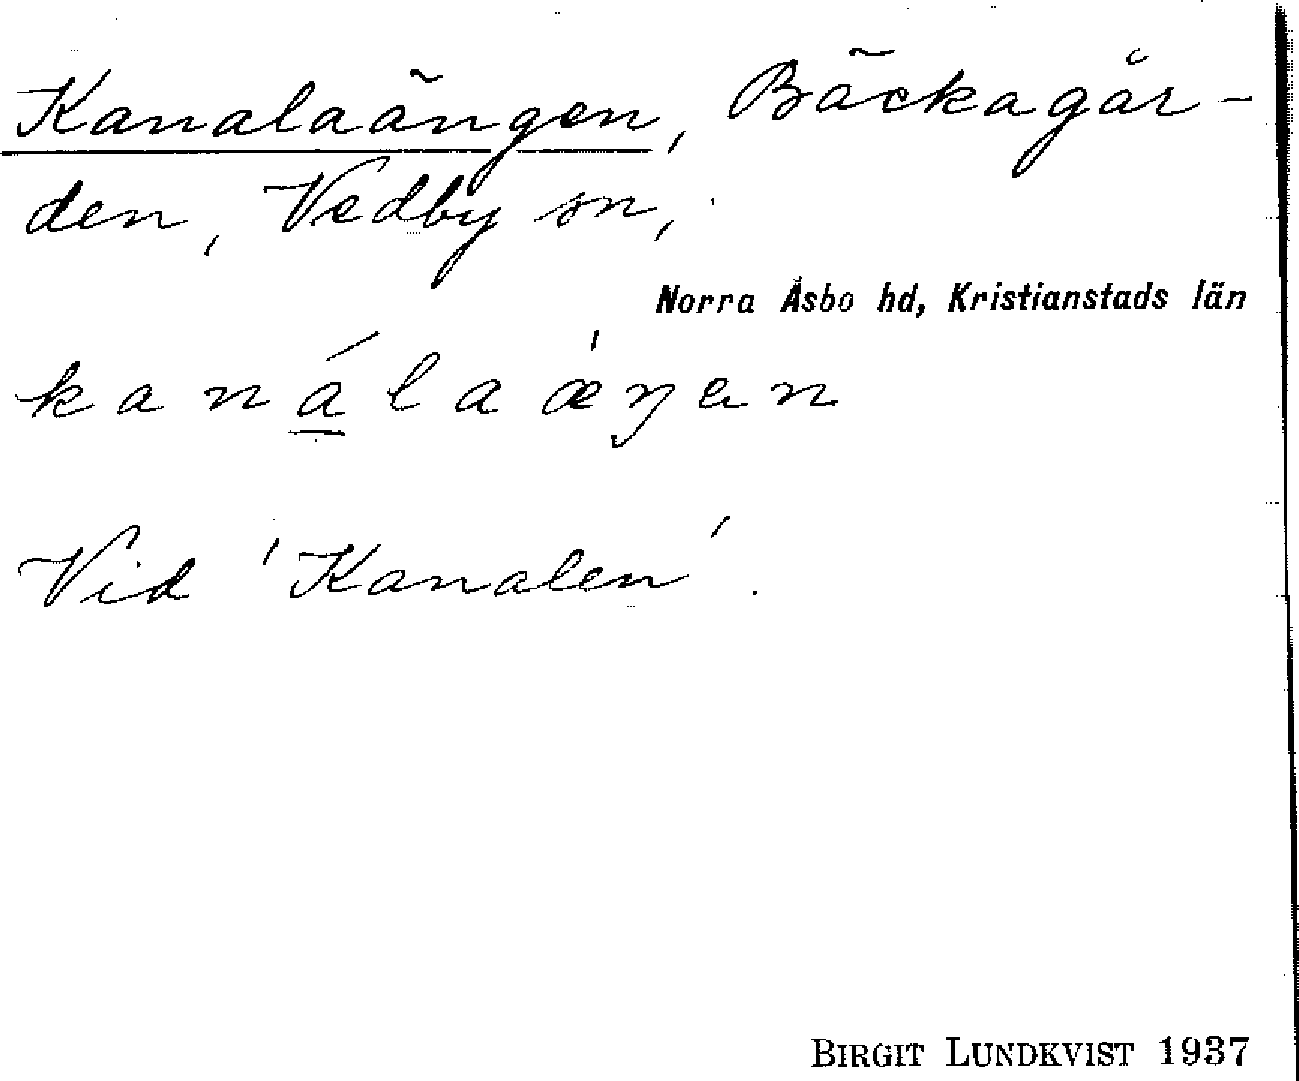 Kanalaängen, Bäckagår-
den, Vedby sn,
Norra Åsbo hd, Kristianstads län
kanálaæ̍ŋen
Vid 'Kanalen'.
BIRGIT LUNDKVIST 1937